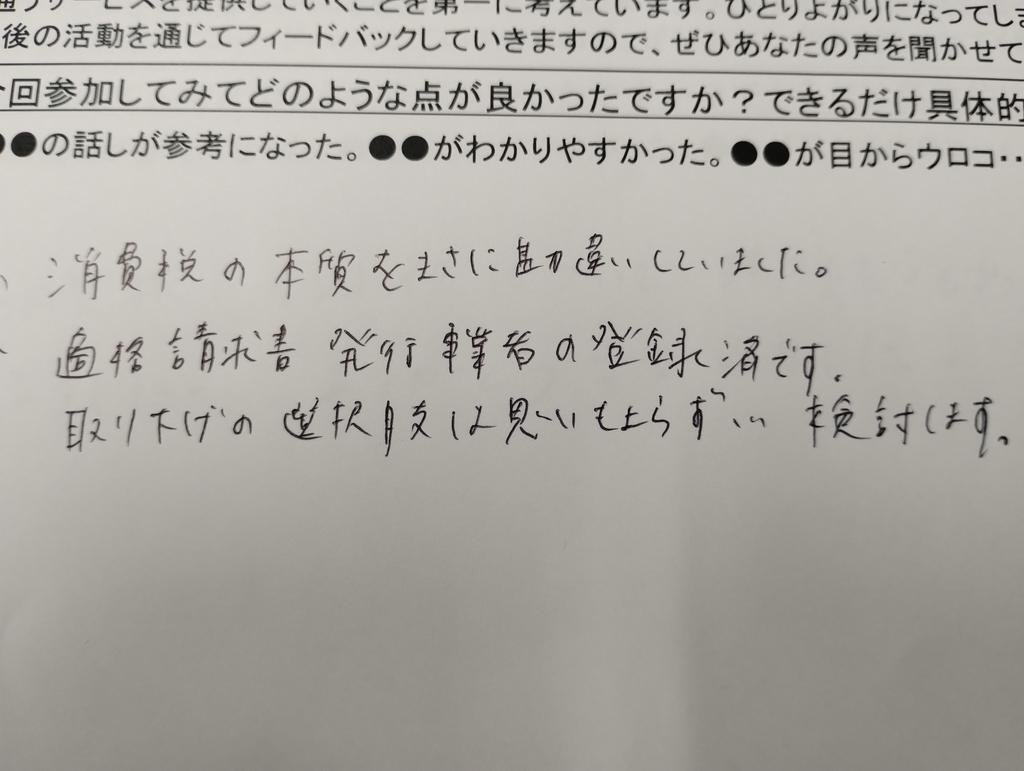 通うサービスを提供していくことを第一に考えています。ひとりよがりになってしま
後の活動を通じてフィードバックしていきますので、ぜひあなたの声を聞かせて
今回参加してみてどのような点が良かったですか？できるだけ具体的
●●の話しが参考になった。●●がわかりやすかった。●●が目からウロコ‥
消費税の本質をまさに勘違いしていました。
適格請求書発行事業者の登録済です。
取り下げの選択肢は思いもよらず、検討します。